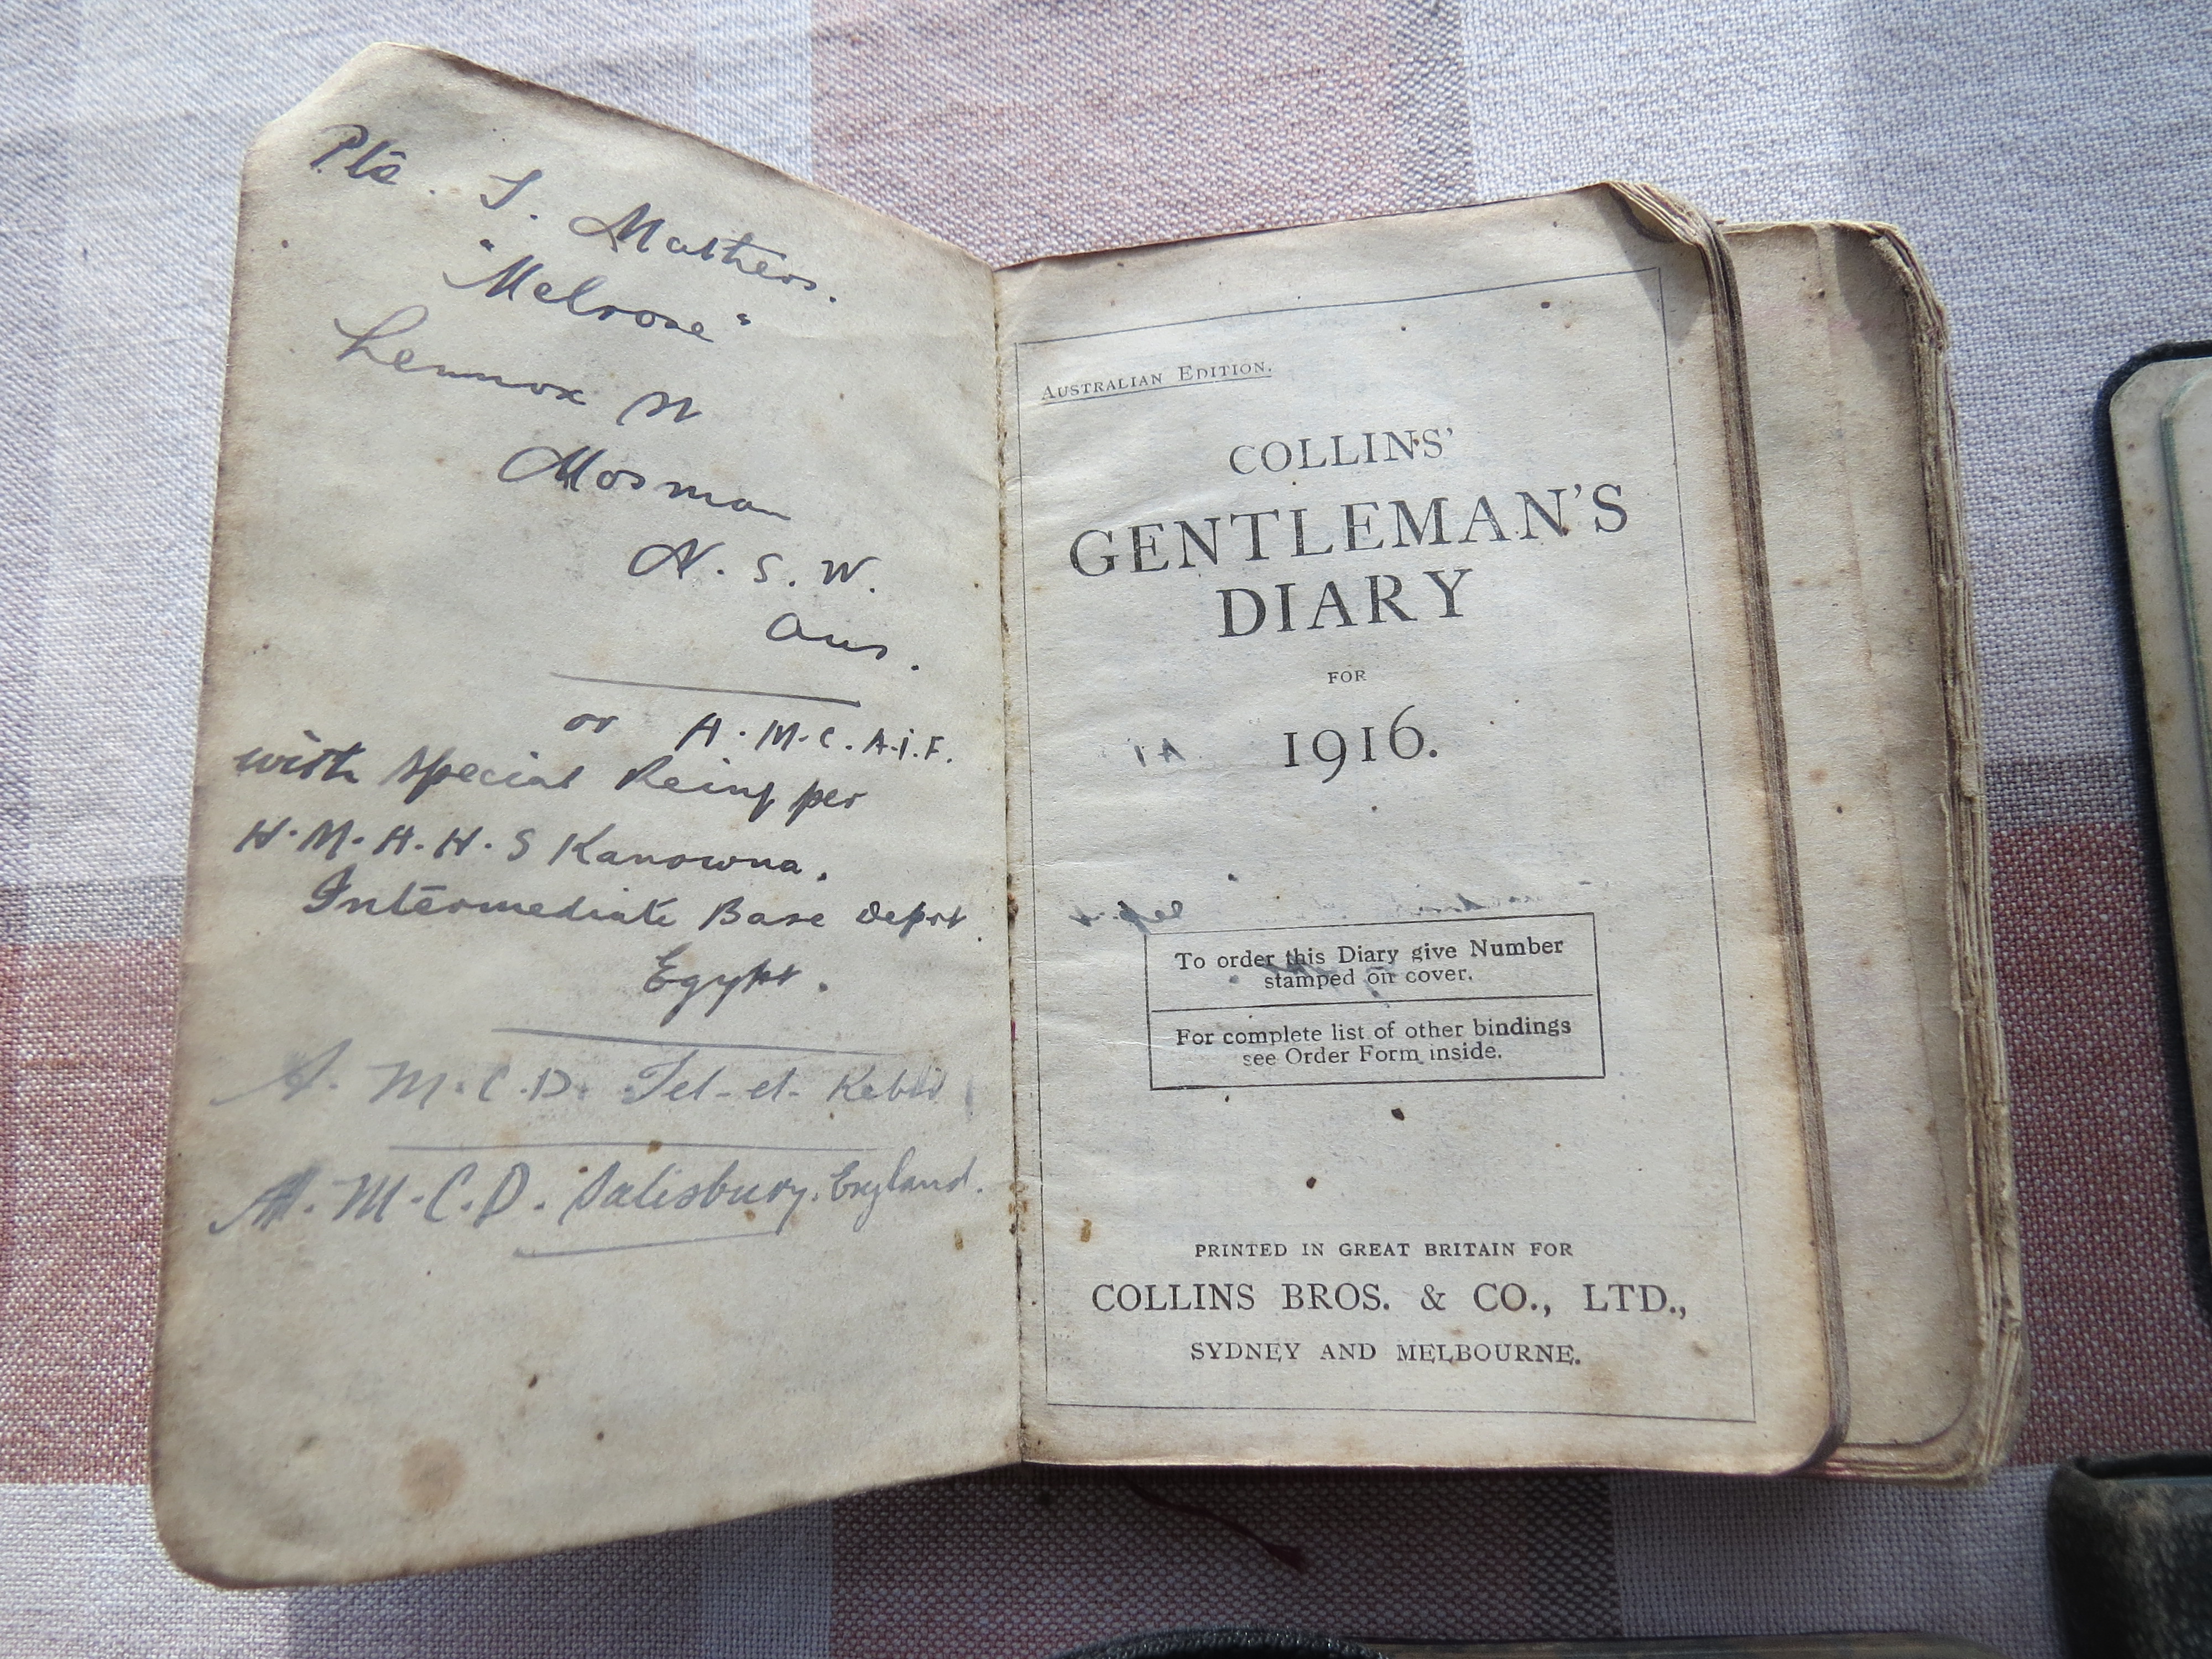 Pte. T. Mathers.
"Melrose"
Lennox St
Mosman
N. S. W.
Aus.
or A. M. C. A. I. F.
with Special Reinf per
H. M. A. H. S Kanowna.
Intermediate Base Depot
Egypt.
A. M. C. D. Tel-el-Kebir
A. M. C. D. Salisbury. England.
AUSTRALIAN EDITION.
COLLINS'
GENTLEMAN'S
DIARY
FOR
1916.
To order this Diary give Number
stamped on cover.
For complete list of other bindings
see Order Form inside.
PRINTED IN GREAT BRITAIN FOR
COLLINS BROS. & CO., LTD.,
SYDNEY AND MELBOURNE.